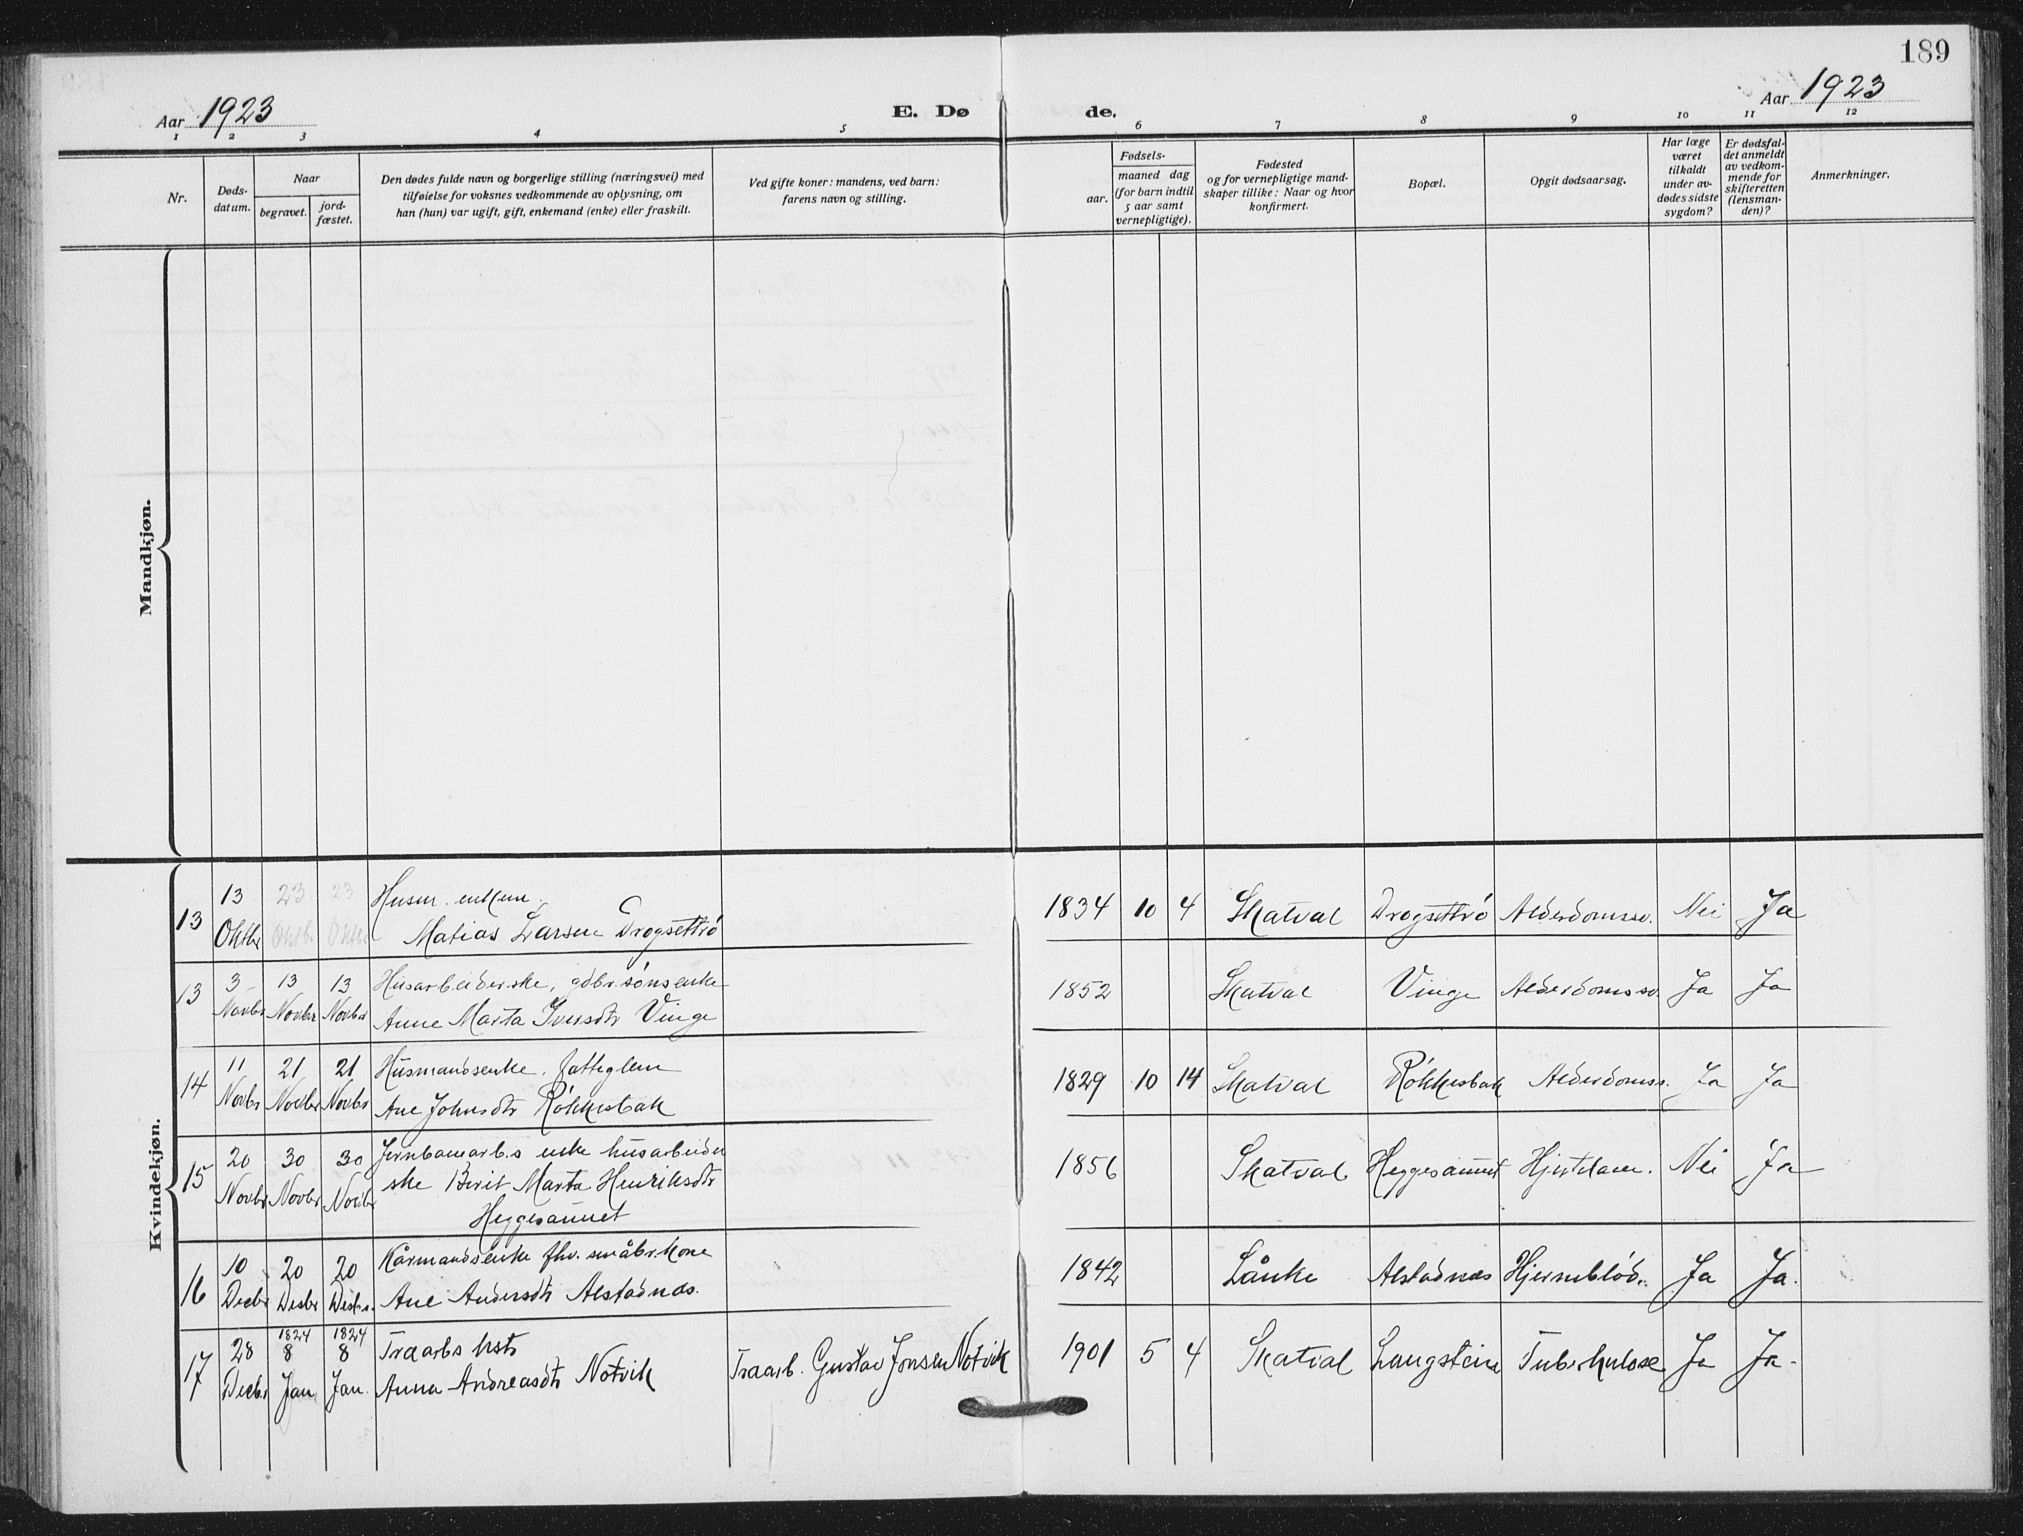 189
Aar 1923
E. Dø
de.
Aar 1923
1 2 3 4 5 6 7 8 9 10 11 12
Nr.
Døds-
datum.
Naar
begravet.
jord-
fæstet.
Den dødes fulde navn og borgerlige stilling (næringsvei) med
tilføielse for voksnes vedkommende av oplysning, om
han (hun) var ugift, gift, enkemand (enke) eller fraskilt.
Ved gifte koner: mandens, ved barn:
farens navn og stilling.
Fødsels-
aar.
maaned dag
(for barn indtil
5 aar samt
vernepligtige).
Fødested
og for vernepligtige mand-
skaper tillike: Naar og hvor
konfirmert.
Bopæl.
Opgit dødsaarsag.
Har læge
været
tilkaldt
under av-
dødes sidste
sygdom?
Er dødsfal-
det anmeldt
av vedkom-
mende for
skifteretten
(lensman-
den)?
Anmerkninger.
Mandkjøn.
Kvindekjøn.
13 13 23 23 Husm. enkem.
Oktbr Oktbr Oktbr Matias Larsen Drogsettrö 1834 10 4 Skatval Drogsettrö Alderdomssv. Nei Ja
13 3 13 13 Husarbeiderske, gdbr.sönsenke
Novbr Novbr Novbr Anne Marta Iversdtr Vinge 1852 Skatval Vinge Alderdomssv. Ja Ja
14 11 21 21 Husmandsenke, fattiglem
Novbr Novbr Novbr Ane Johnsdtr Rökkesbak 1829 10 14 Skatval Rökkesbak Alderdomss. Ja Ja
15 20 30 30 Jernbanearb.s enke husarbeider
Novbr Novbr Novbr ske Berit Marta Henriksdtr 1856 Skatval Heggesaunet Hjertelam. Nei Ja
Heggesaunet
16 10 20 20 Kårmandsenke fhv. småbr.kone
Decbr Desbr Desbr. Ane Andersdtr Alstadnes. 1842 Lånke Alstadnes Hjerneblöd. Ja Ja.
17 28 1824 8 1824 8 Traarbs hstr
Decbr Jan Jan. Anna Andreasdtr Notvik Traarb. Gustav Jonsen Notvik 1901 5 4 Skatval Langstein Tuberkulose Ja Ja.